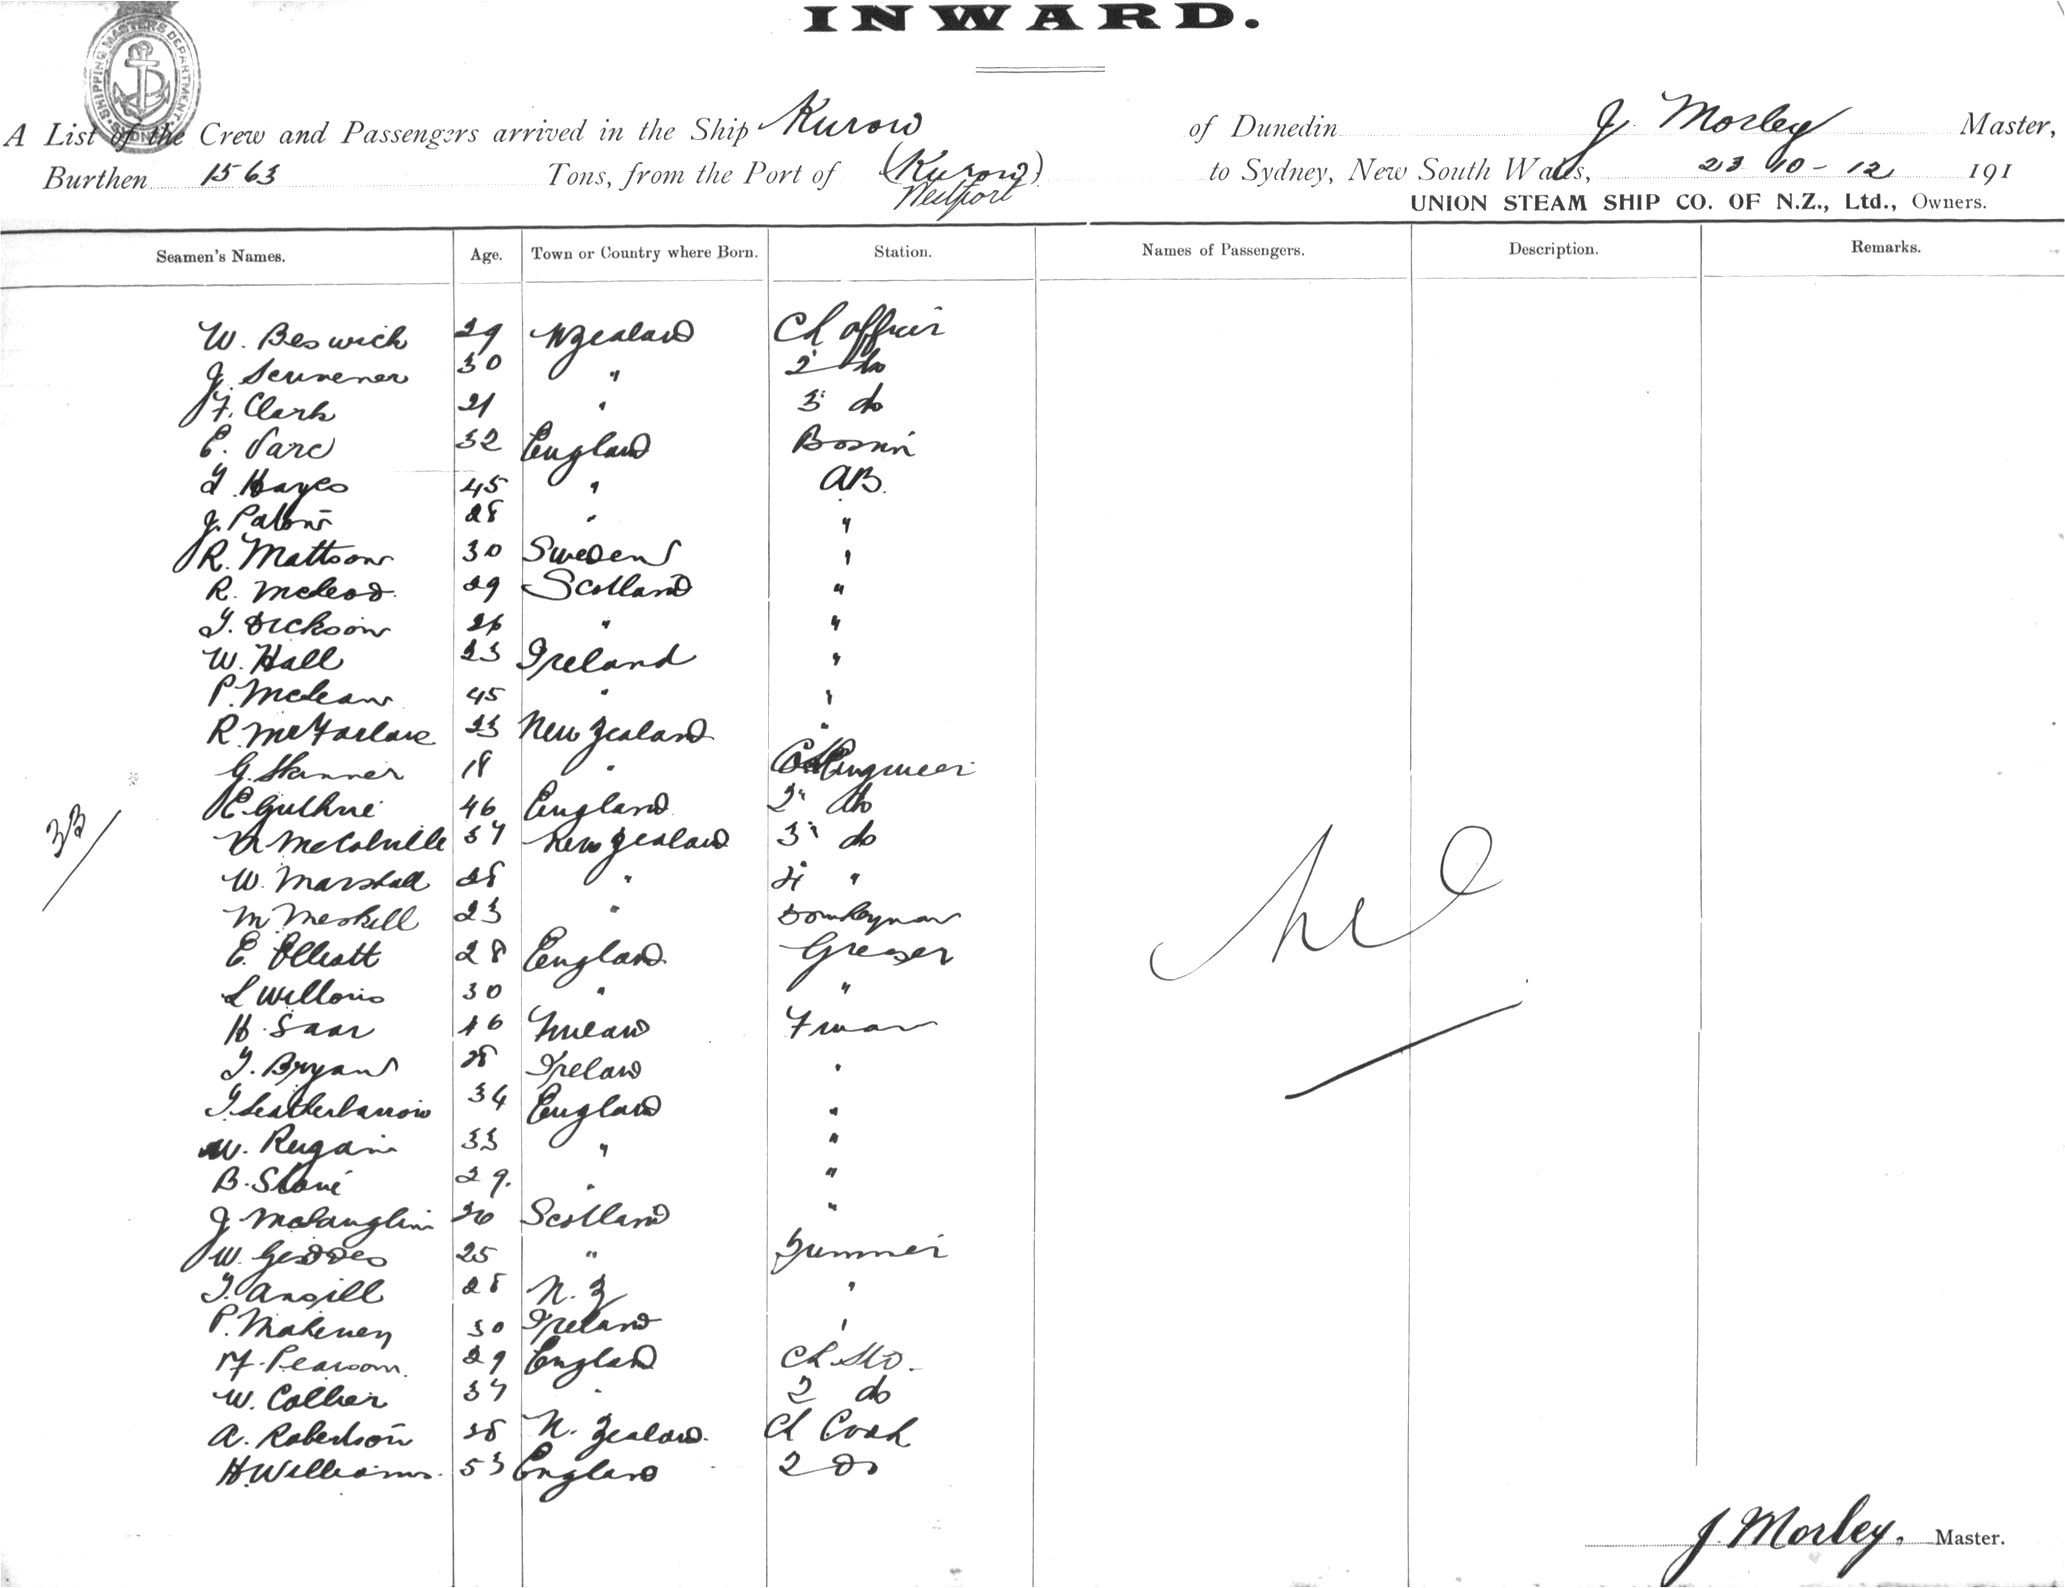 INWARD.
SHIPPING MASTERS DEPARTMENT
A List of the Crew and Passengers arrived in the Ship Kurow of Dunedin J. Morley Master,
Burthen 1563 Tons, from the Port of (Kurow) to Sydney, New South Wales, 23 10-12 191
Westport
UNION STEAM SHIP CO. OF N.Z., Ltd., Owners.
Seamen's Names. Age. Town or Country where Born. Station. Names of Passengers. Description. Remarks.
W. Beswick 29 N Zealand Ch officer
J. Scrivener 30 " 2 do
F. Clark 21 " 3 do
E. 32 England Bosun
T. Hayes 45 " AB.
J. 28 " "
R. Mattson 30 Sweden "
R. McLeod. 29 Scotland "
T. Dickson 26 " "
W. Hall 23 Ireland "
P. McLean 45 " "
R. McFarlane 23 New Zealand "
G. Skinner 18 " Engineer
E. Guthrie 46 England 2" do
McColville 37 New Zealand 3" do
W. Marshall 28 " 4 "
M Meskill 23 " Donkeyman
E. Elliott 28 England Greaser
L 30 " "
H. Saar 46 Fman
T. Bryant 28 Ireland "
T. Leatherbarrow 34 England "
W. 33 " "
B. 29. " "
J. McLauglin 26 Scotland "
W. Geddes 25 " Trimmer
T. Ansill 28 N. Z "
P. Maheney 30 Ireland "
Pearson. 29 England Ch. Std.
W. Collier 37 " 2 do
A. Robertson 28 N. Zealand. Ch Cook
H. Williams. 53 England 2 Do
33
J. Morley. Master.